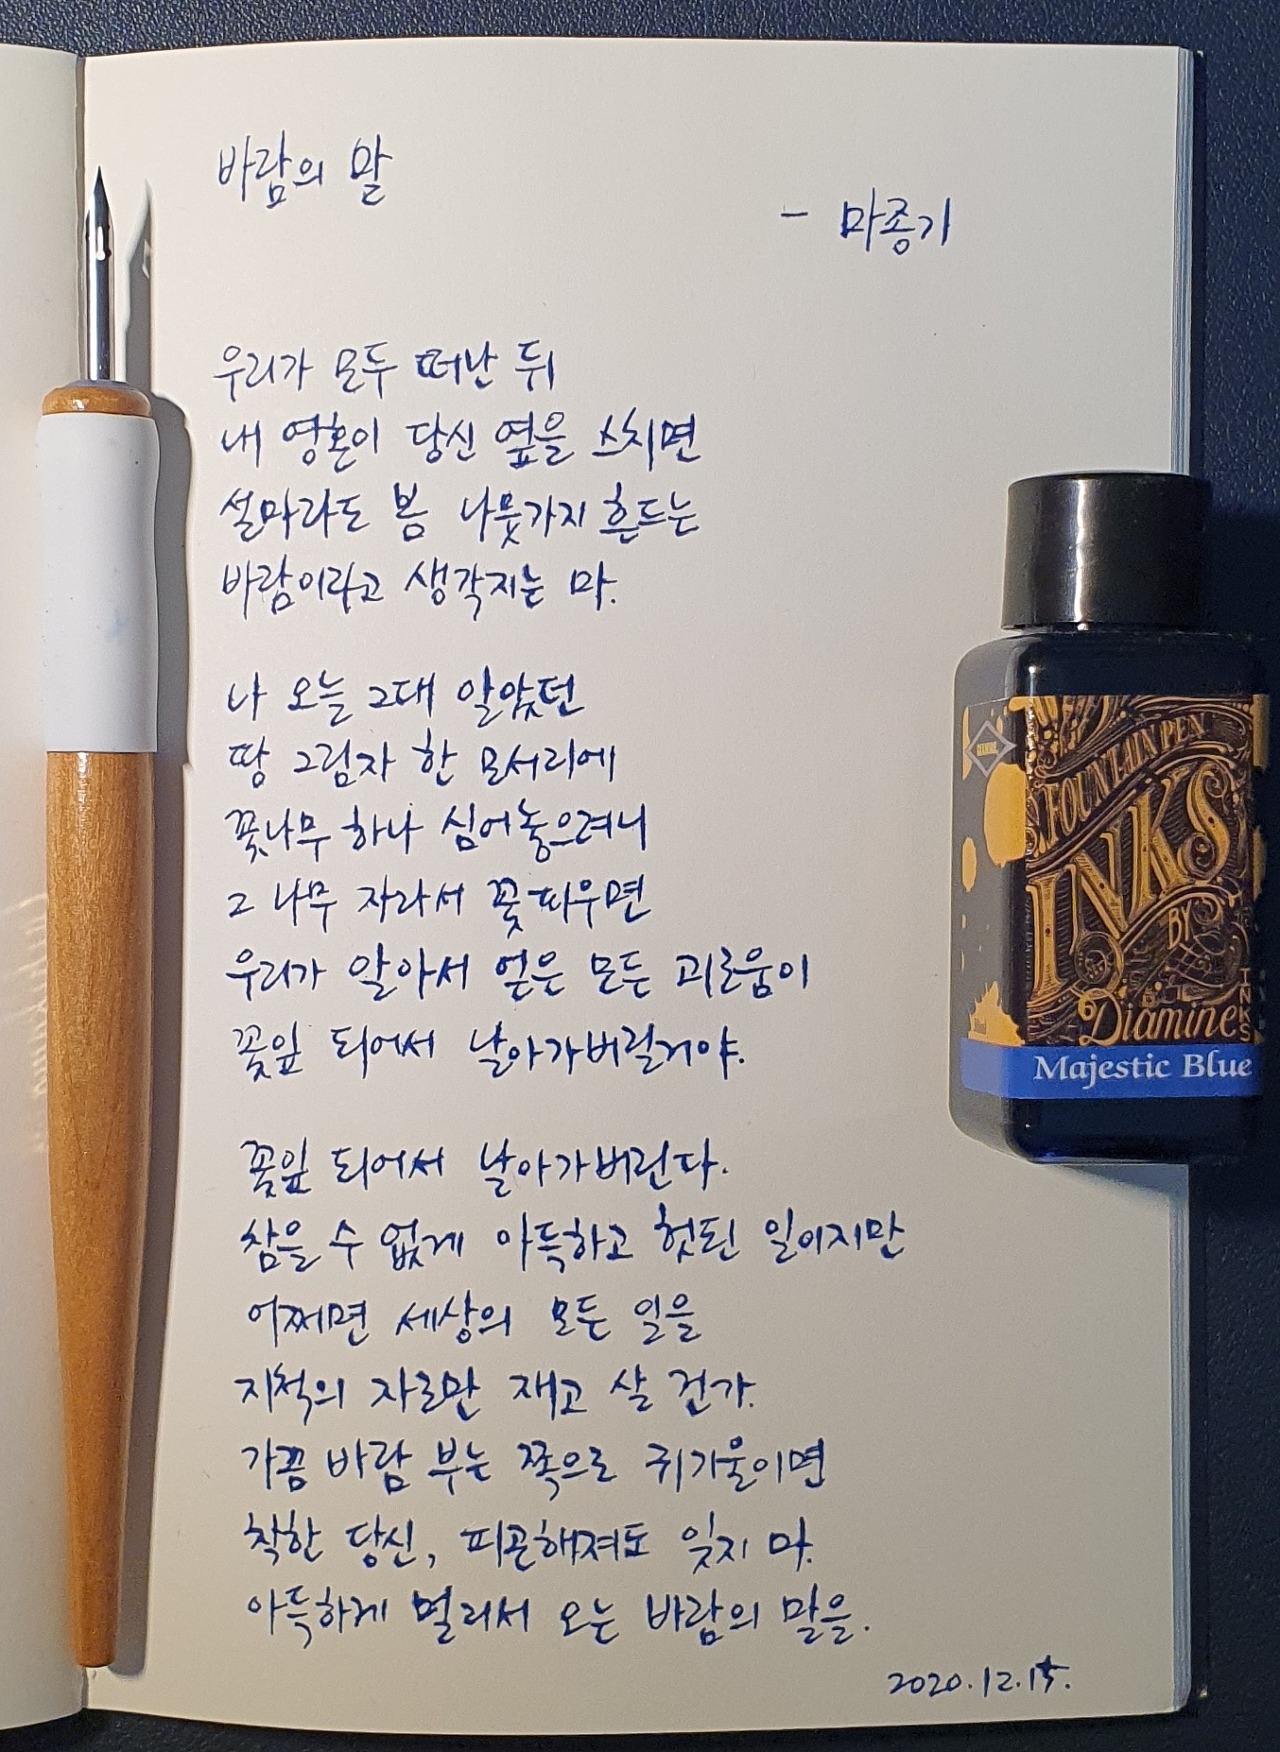 바람의 말
- 마종기
우리가 모두 떠난 뒤
내 영혼이 당신 옆을 스치면
설마라도 봄 나뭇가지 흔드는
바람이라고 생각지는 마.
나 오늘 그대 알았던
땅 그림자 한 모서리에
꽃나무 하나 심어놓으려니
그 나무 자라서 꽃피우면
우리가 알아서 얻은 모든 괴로움이
꽃잎 되어서 날아가버릴거야.
꽃잎 되어서 날아가버린다.
참을 수 없게 아득하고 헛된 일이지만
어쩌면 세상의 모든 일을
지척의 자로만 재고 살 건가.
가끔 바람 부는 쪽으로 귀기울이면
착한 당신, 피곤해져도 잊지 마.
아득하게 멀리서 오는 바람의 말을.
2020.12.15.
FOUNTAIN PEN
INKS
BY
Diamine
INKS
Majestic Blue